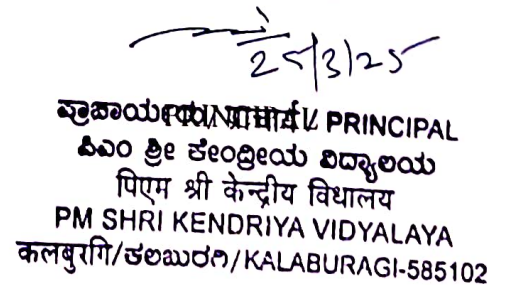 25/3/25
ಪ್ರಾಚಾರ್ಯ / PRINCIPAL
ಪಿಎಂ ಶ್ರೀ ಕೇಂದ್ರೀಯ ವಿದ್ಯಾಲಯ
पिएम श्री केन्द्रीय विधालय
PM SHRI KENDRIYA VIDYALAYA
कलबुरगि/ಕಲಬುರಗಿ/KALABURAGI-585102